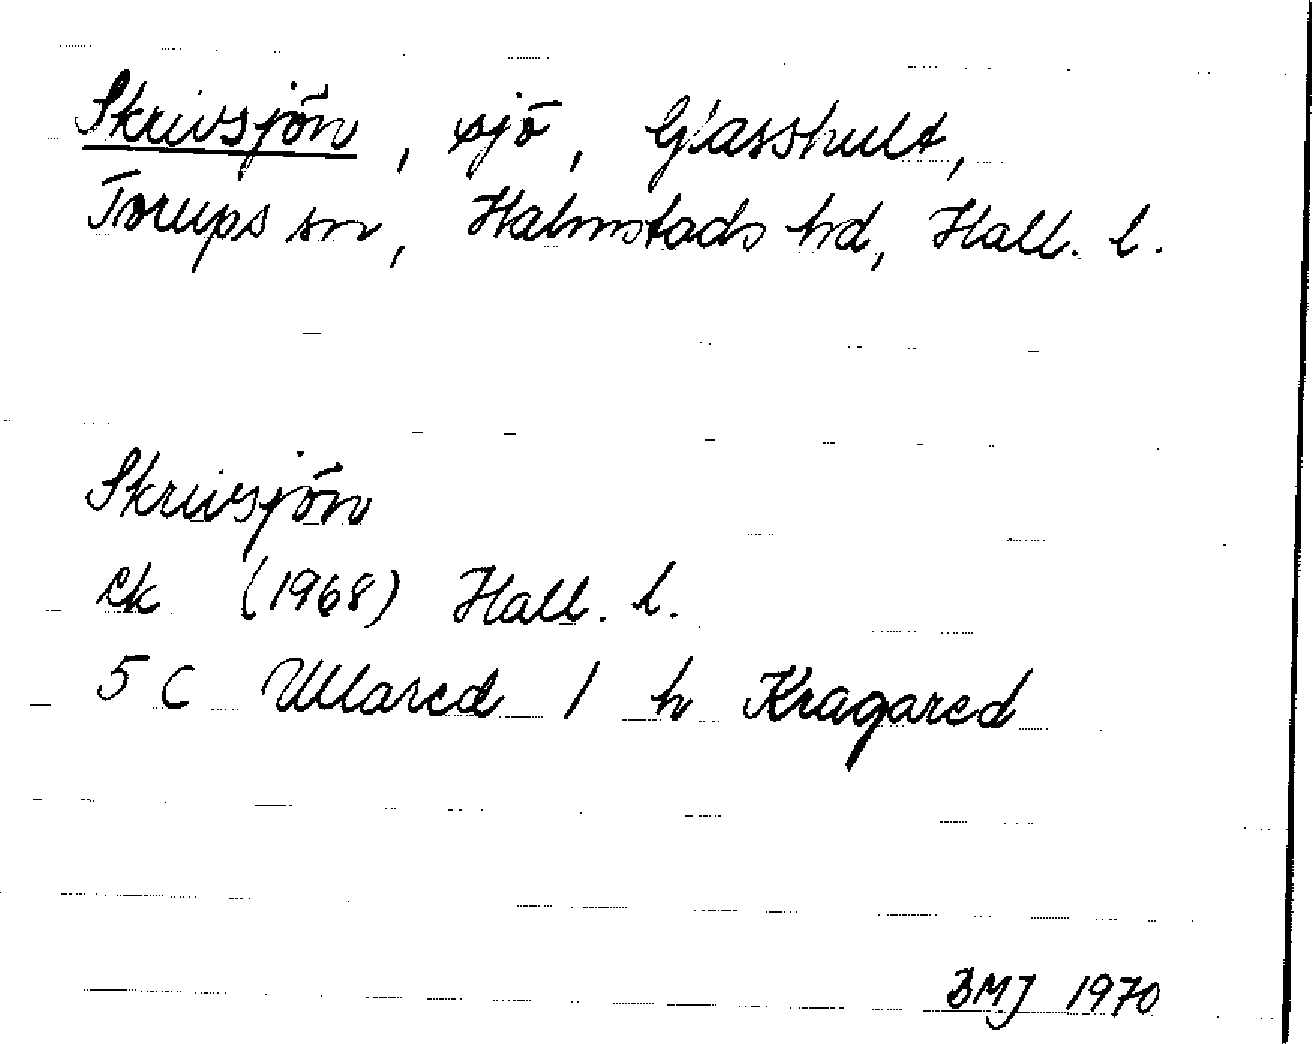 Skrivsjön, sjö, Glasshult,
Torups sn, Halmstads hd, Hall. l.
Skrivsjön
ek (1968) Hall. l.
5 C Ullared 1 h Kragared
BMJ 1970